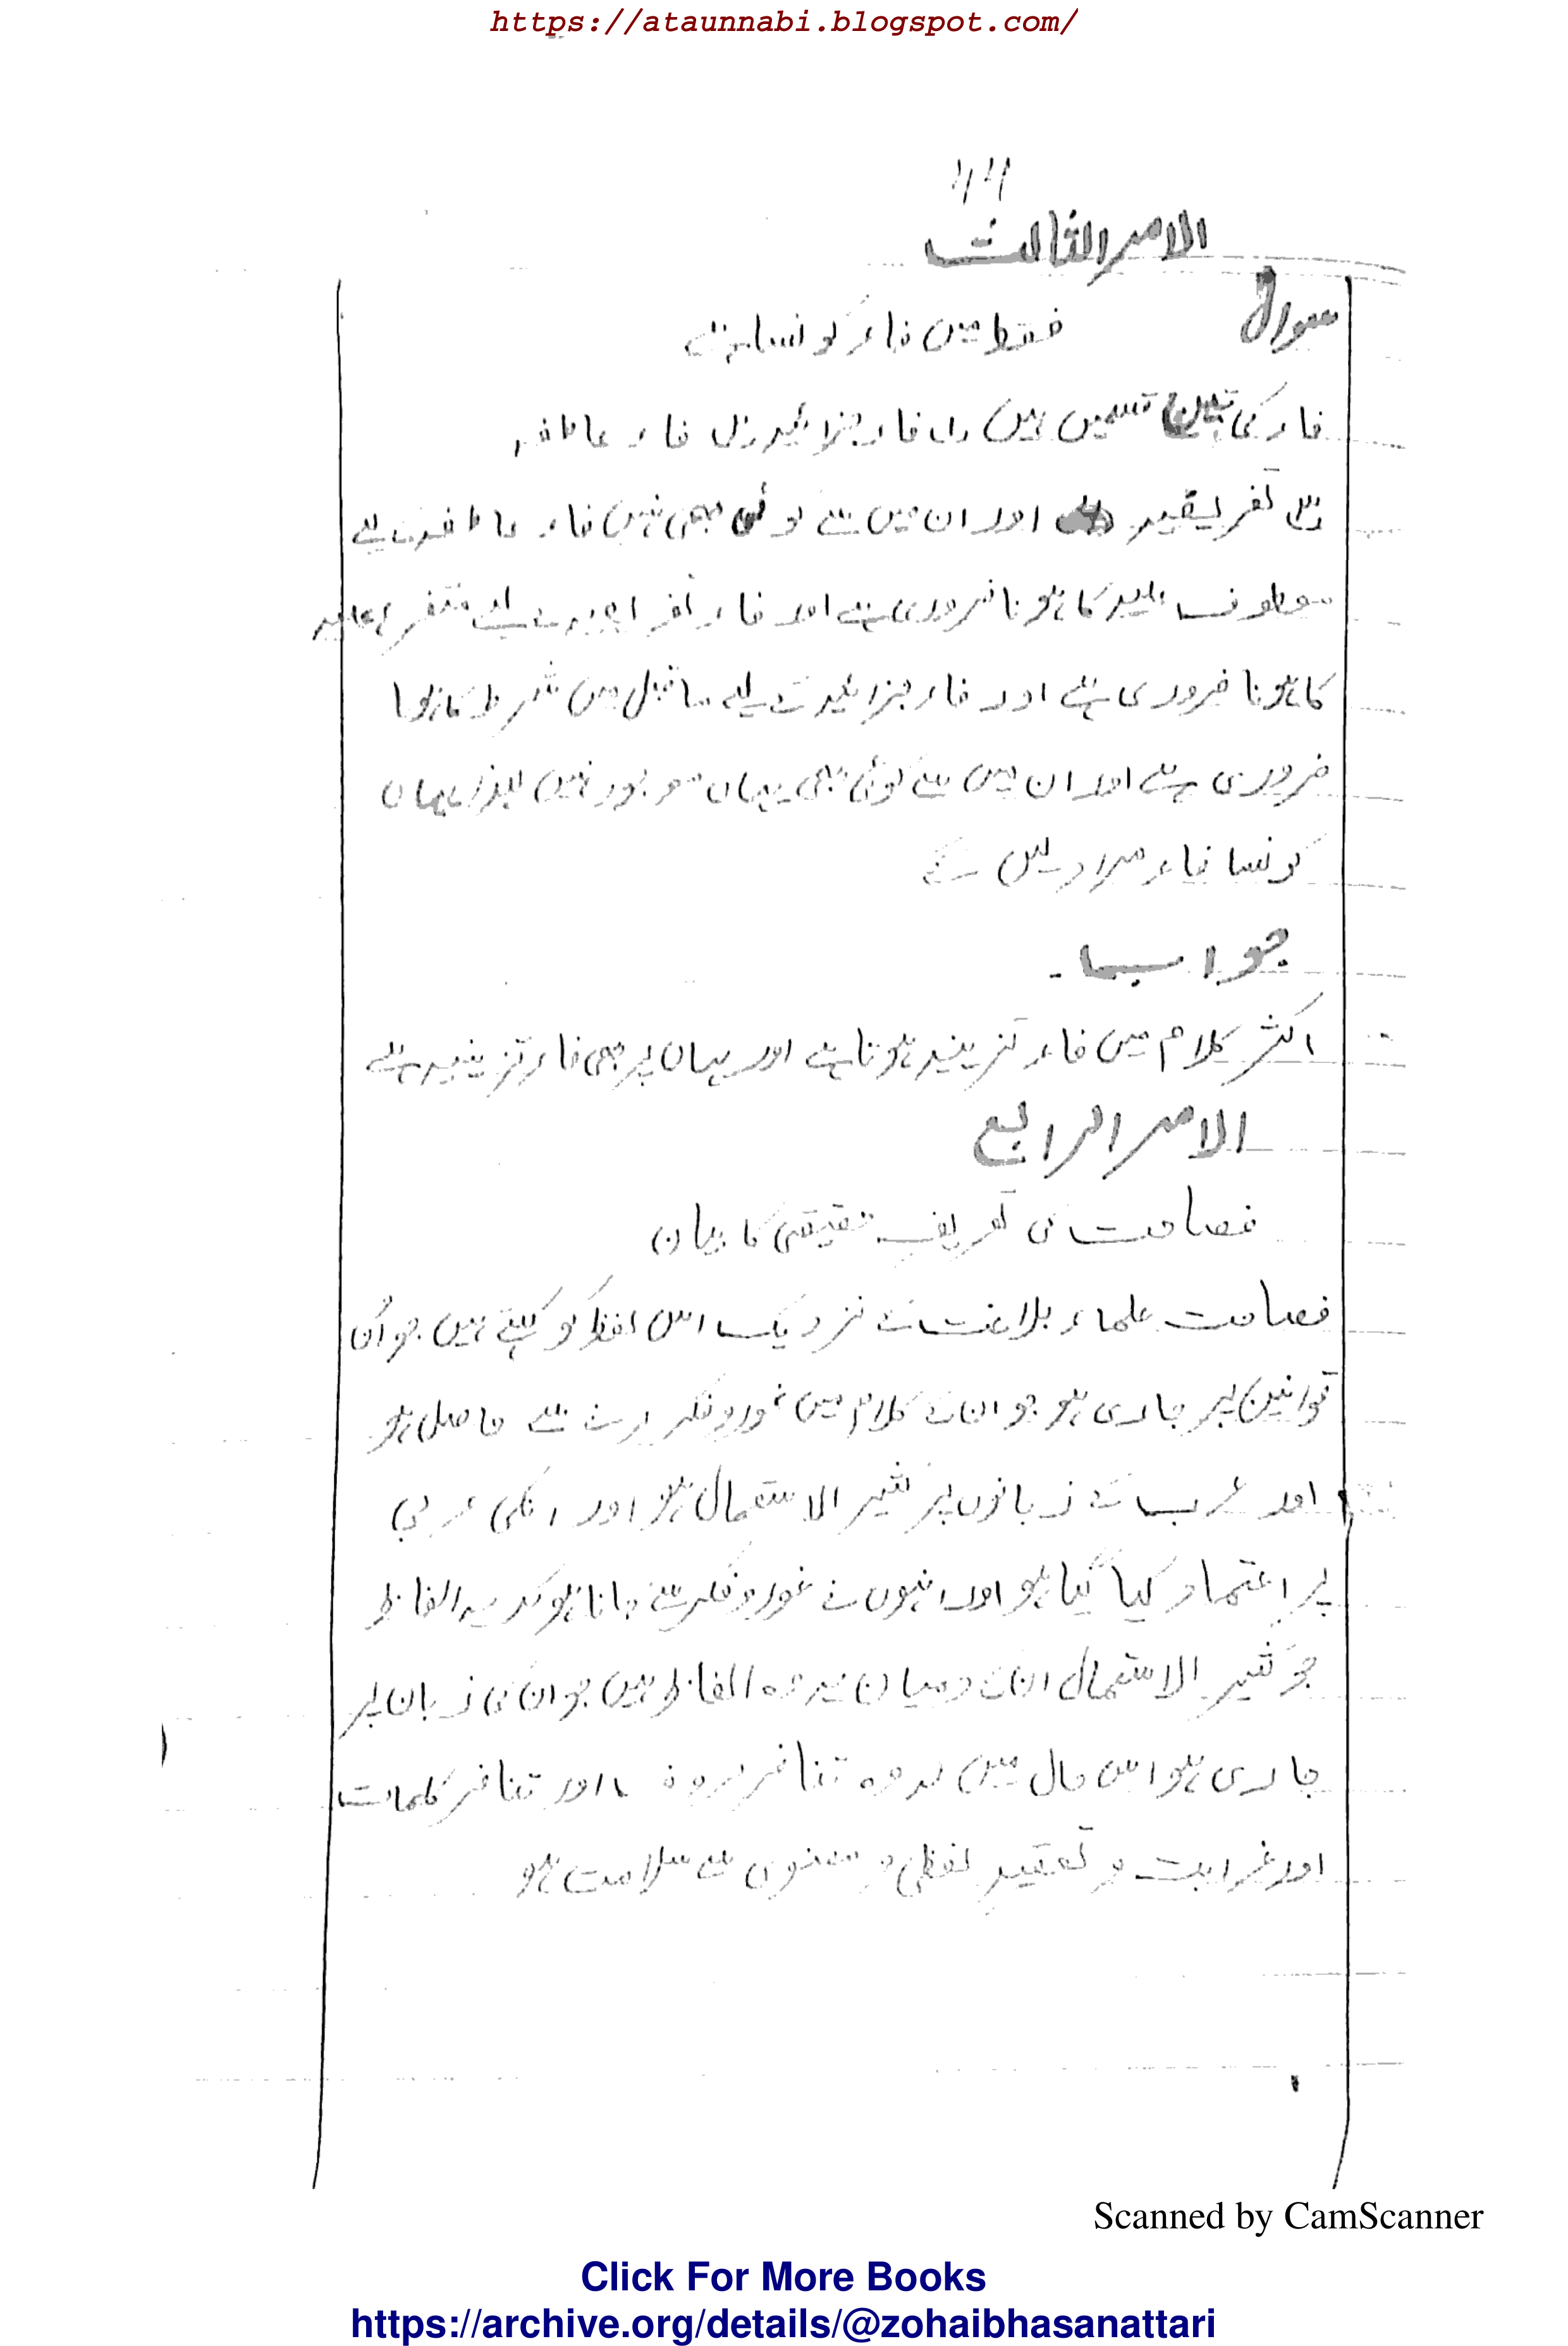 https://ataunnabi.blogspot.com/
الامر الثالث
سوال
فقط میں فاء کونسا ہے
فاء کی تین قسمیں ہیں فاء جزائیہ فاء عاطفہ
تفریعیہ اور ان میں سے کوئی بھی نہیں فاء عاطفہ کے لیے
معطوف علیہ کا ہونا ضروری ہے اور فاء تفریعیہ کے لیے متفرع علیہ
کا ہونا ضروری ہے اور فاء جزائیہ کے لیے ماقبل میں شرط کا ہونا
ضروری ہے اور ان میں سے کوئی بھی یہاں موجود نہیں لہذا یہاں
کونسا فاء مراد لیں گے
جواب
اکثر کلام میں فاء تزیینیہ ہوتا ہے اور یہاں پر بھی فاء تزیینیہ ہے
الامر الرابع
فصاحت کی تعریف حقیقی کا بیان
فصاحت علماء بلاغت کے نزدیک اس لفظ کو کہتے ہیں جو اُن
قوانین پر جاری ہو جو انکے کلام میں غور و فکر کرنے سے حاصل ہو
اور عرب کے زبانوں پر کثیر الاستعمال ہو اور انکی عربی
پر اعتماد کیا گیا ہو اور انہوں نے غور و فکر سے جانا ہو کہ یہ الفاظ
جو کثیر الاستعمال انکے درمیان ہے وہ الفاظ ہیں جو ان کی زبان پر
جاری ہو اس حال میں کہ وہ تنافر حروف اور تنافر کلمات
اور غرابت و تعقید لفظی و معنوی سے سلامت ہو
Scanned by CamScanner
Click For More Books
https://archive.org/details/@zohaibhasanattari